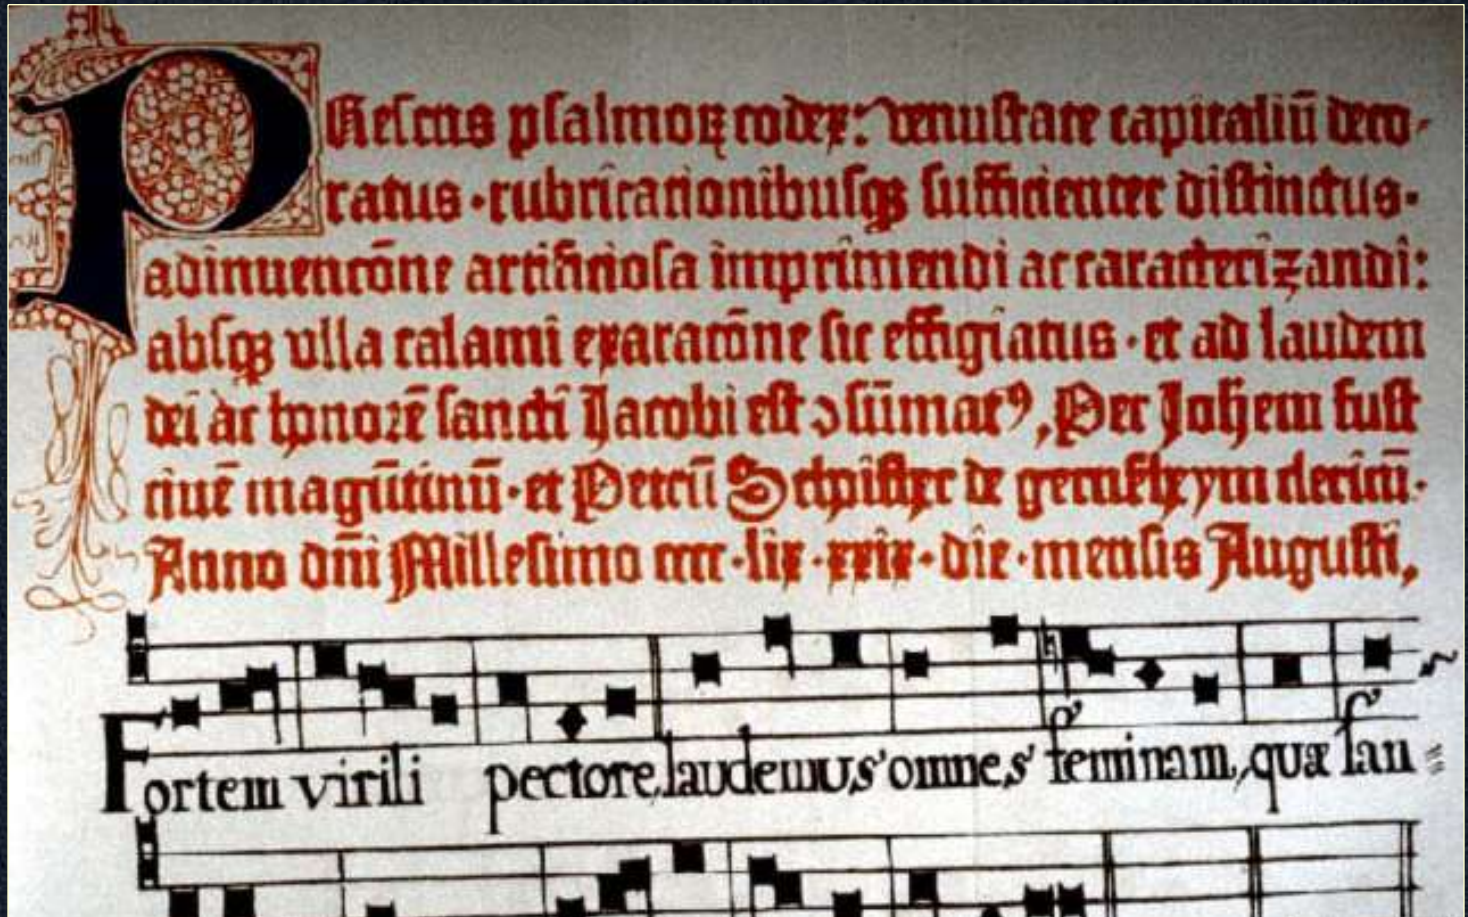 PResens psalmoꝝ codex: venustate capitaliū deco-
ratus ·rubricationibusqꝫ sufficienter distinctus·
adinuencōne artificiosa imprimendi ac caracterizandi:
absqꝫ ulla calami exaracōne sic effigiatus · et ad laudem
dei ac honorē sancti Jacobi est ↄsūmatꝰ, Per Johem fust
ciuē magūtinū · et Petrū Schoiffher de gernssheym clericū·
Anno dn̄i Millesimo cccc · lix · xxix · die · mensis Augusti,
Fortem virili pectore, laudemus omnes feminam, quæ san